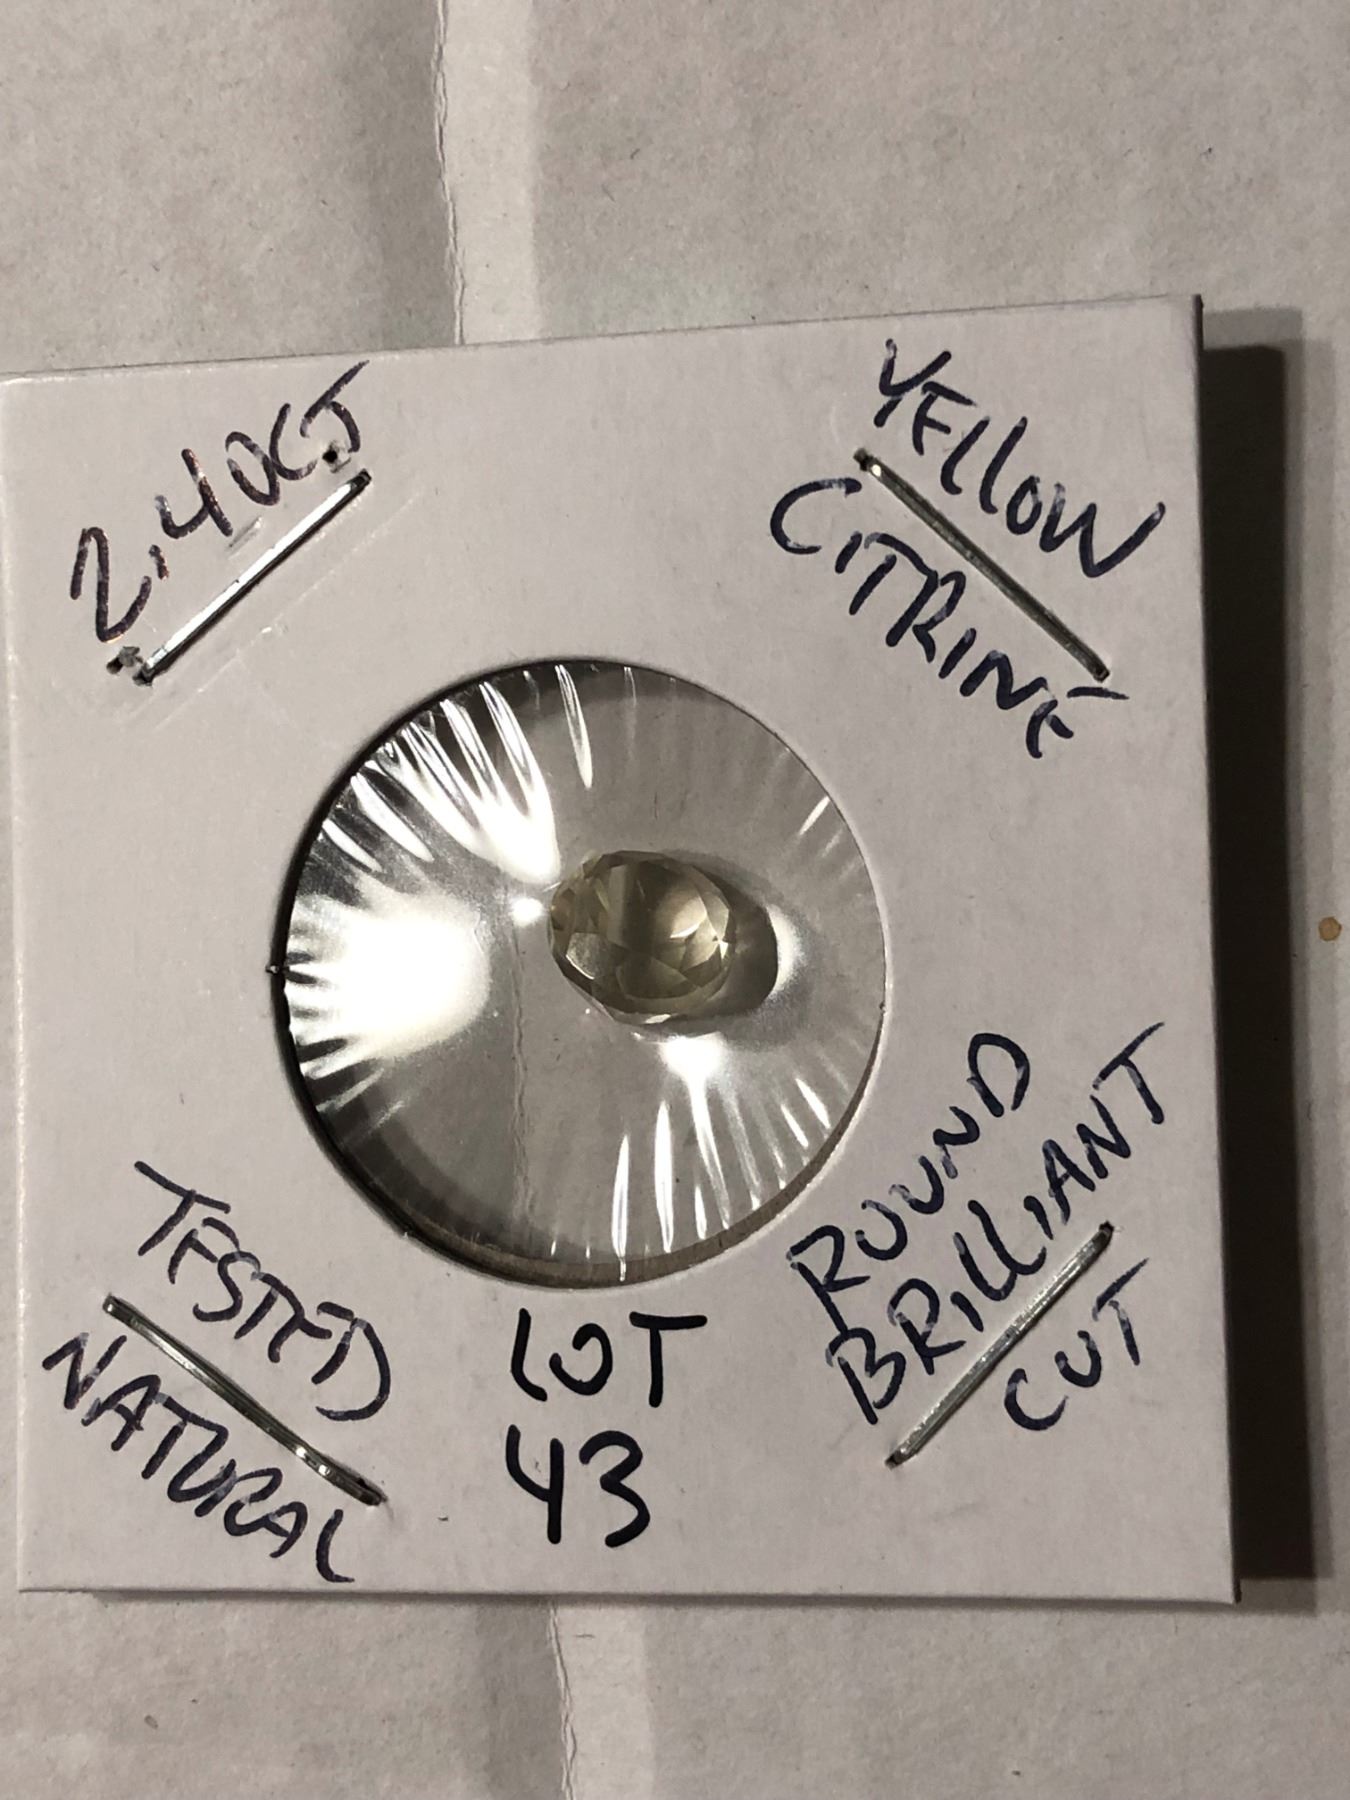 2.40CT
YELLOW
CITRINE
TESTED
NATURAL
LOT
43
ROUND
BRILLIANT
CUT